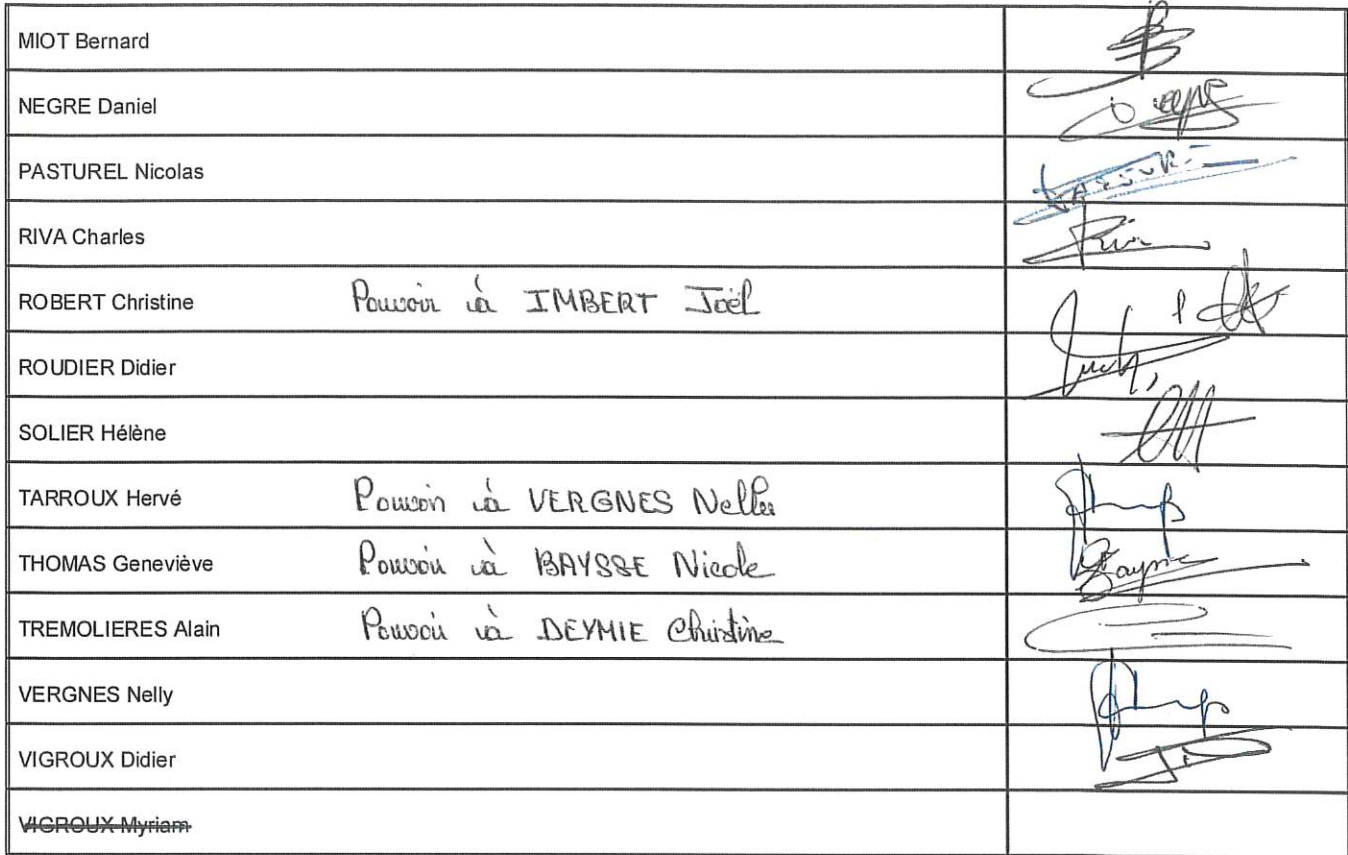 MIOT Bernard
NEGRE Daniel
PASTUREL Nicolas
RIVA Charles
ROBERT Christine Pouvoir à IMBERT Joël
ROUDIER Didier
SOLIER Hélène
TARROUX Hervé Pouvoir à VERGNES Nelly
THOMAS Geneviève Pouvoir à BAYSSE Nicole
TREMOLIERES Alain Pouvoir à DEYMIE Christine
VERGNES Nelly
VIGROUX Didier
VIGROUX Myriam